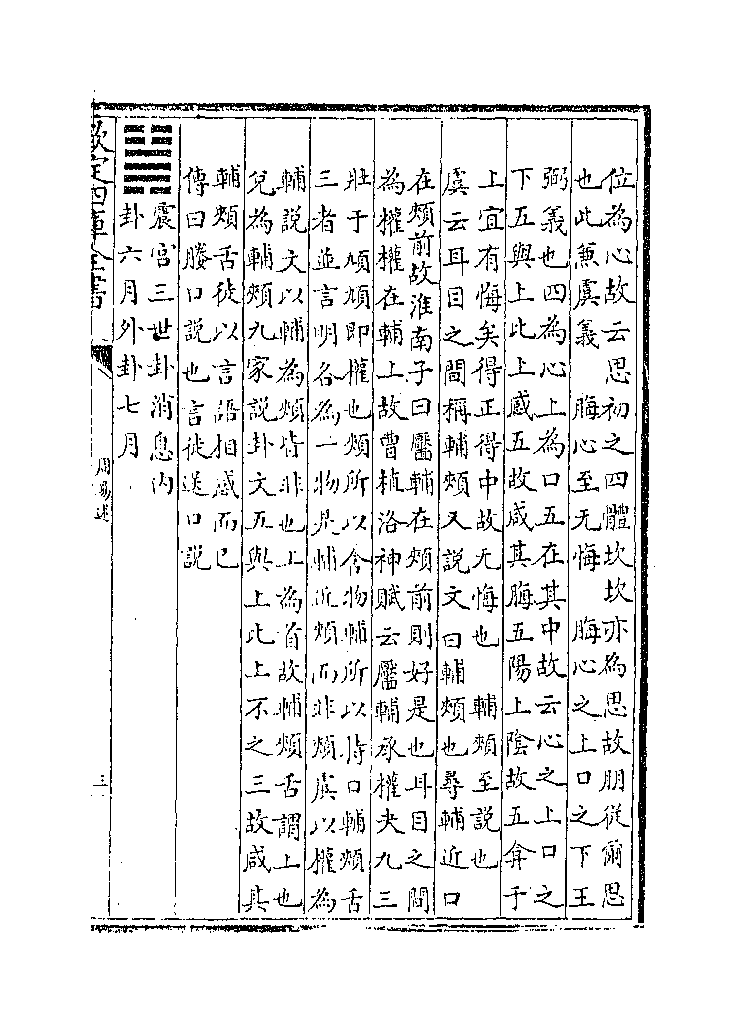 位為心故云思初之四體坎坎亦為思故朋從爾思
也此兼虞義　脢心至无悔　脢心之上口之下王
弼義也四為心上為口五在其中故云心之上口之
下五與上比上感五故咸其脢五陽上陰故五弇于
上宜有悔矣得正得中故无悔也　輔頰至說也
虞云耳目之間稱輔頰又說文曰輔頰也尋輔近口
在頰前故淮南子曰靨輔在頰前則好是也耳目之間
為權權在輔上故曹植洛神賦云靨輔承權夬九三
壯于頄頄即權也頰所以含物輔所以持口輔頰舌
三者並言明各為一物是輔近頰而非頰虞以權為
輔說文以輔為頰皆非也上為首故輔頰舌謂上也
兌為輔頰九家說卦文五與上比上不之三故咸其
輔頰舌徒以言語相感而已
傳曰媵口說也言徒送口說
䷟震宮三世卦消息內
卦六月外卦七月
欽定四庫全書
周易述
三